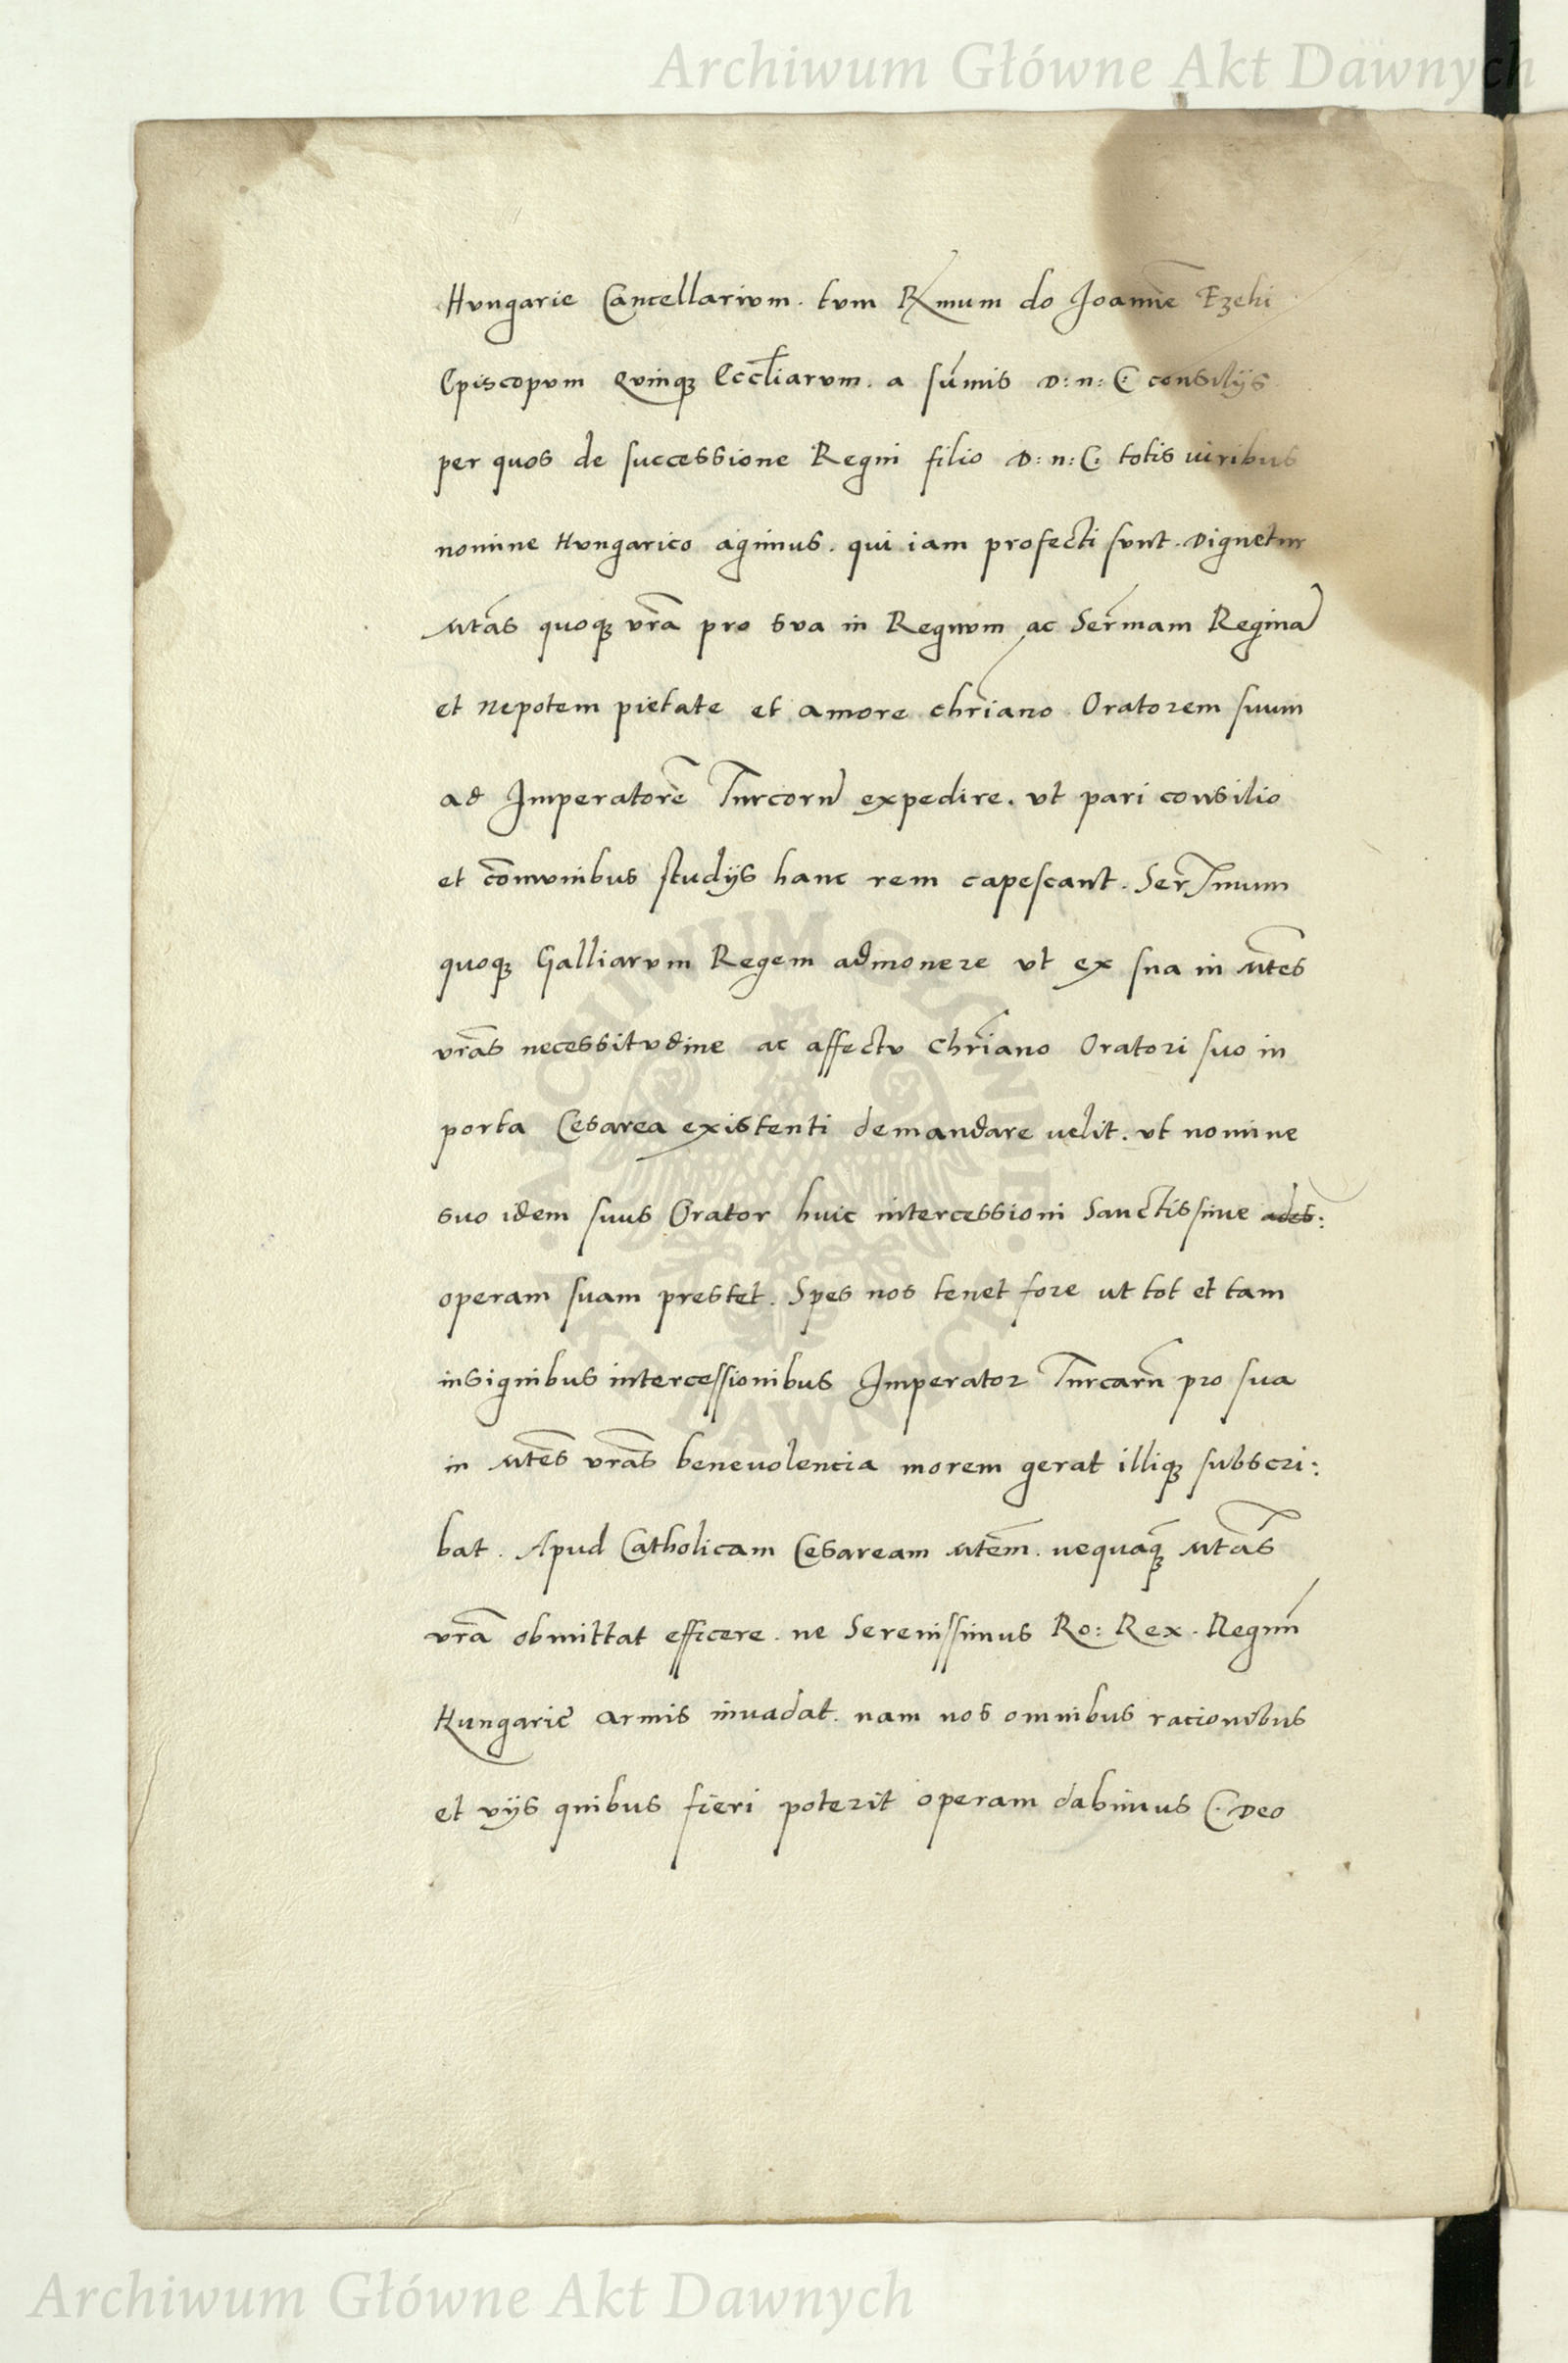 Archiwum Główne Akt Dawnych
Hungarie Cancellarium. tum R̃mum do Joannē Ezeki
Episcopum Quinqꝫ Eccl̄iarum. a sūmis D: n: C consilijs
per quos de successione Regni filio D: n: C. totis uiribus
nomine Hungarico agimus. qui iam profecti sunt. Dignetur
Mtās quoqꝫ vrā pro sua in Regnum ac Serm̄am Reginā
et nepotem pietate et amore chr̄iano Oratorem suum
ad Imperatorē Turcorū expedire. ut pari consilio
et cōmunibus studijs hanc rem capescant. Ser̄mum
quoqꝫ Galliarum Regem admonere ut ex sua in Mtēs
vrās necessitudine ac affectu chr̄iano Oratori suo in
porta Cesarea existenti demandare uelit. ut nomine
suo idem suus Orator huic intercessioni Sanctissime
operam suam prestet. Spes nos tenet fore ut tot et tam
insignibus intercessionibus Imperator Turcarū pro sua
in Mtēs vrās beneuolencia morem gerat illiqꝫ subscri:
bat. Apud Catholicam Cesaream Mtēm. nequāqꝫ Mtās
vrā obmittat efficere. ne Serenissimus Ro: Rex. Regnū
Hungarie armis inuadat. nam nos omnibus racionibus
et vijs quibus fieri poterit operam dabimus C. Deo
ARCHIWUM GŁÓWNE AKT DAWNYCH
Archiwum Główne Akt Dawnych